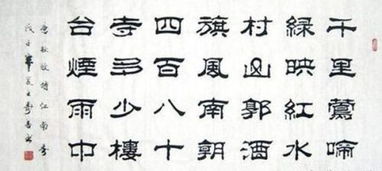 千里鶯啼
綠映紅水
村山郭酒
旗風南朝
四百八十
寺多少樓
台煙雨中
唐杜牧詩江南春
戊子